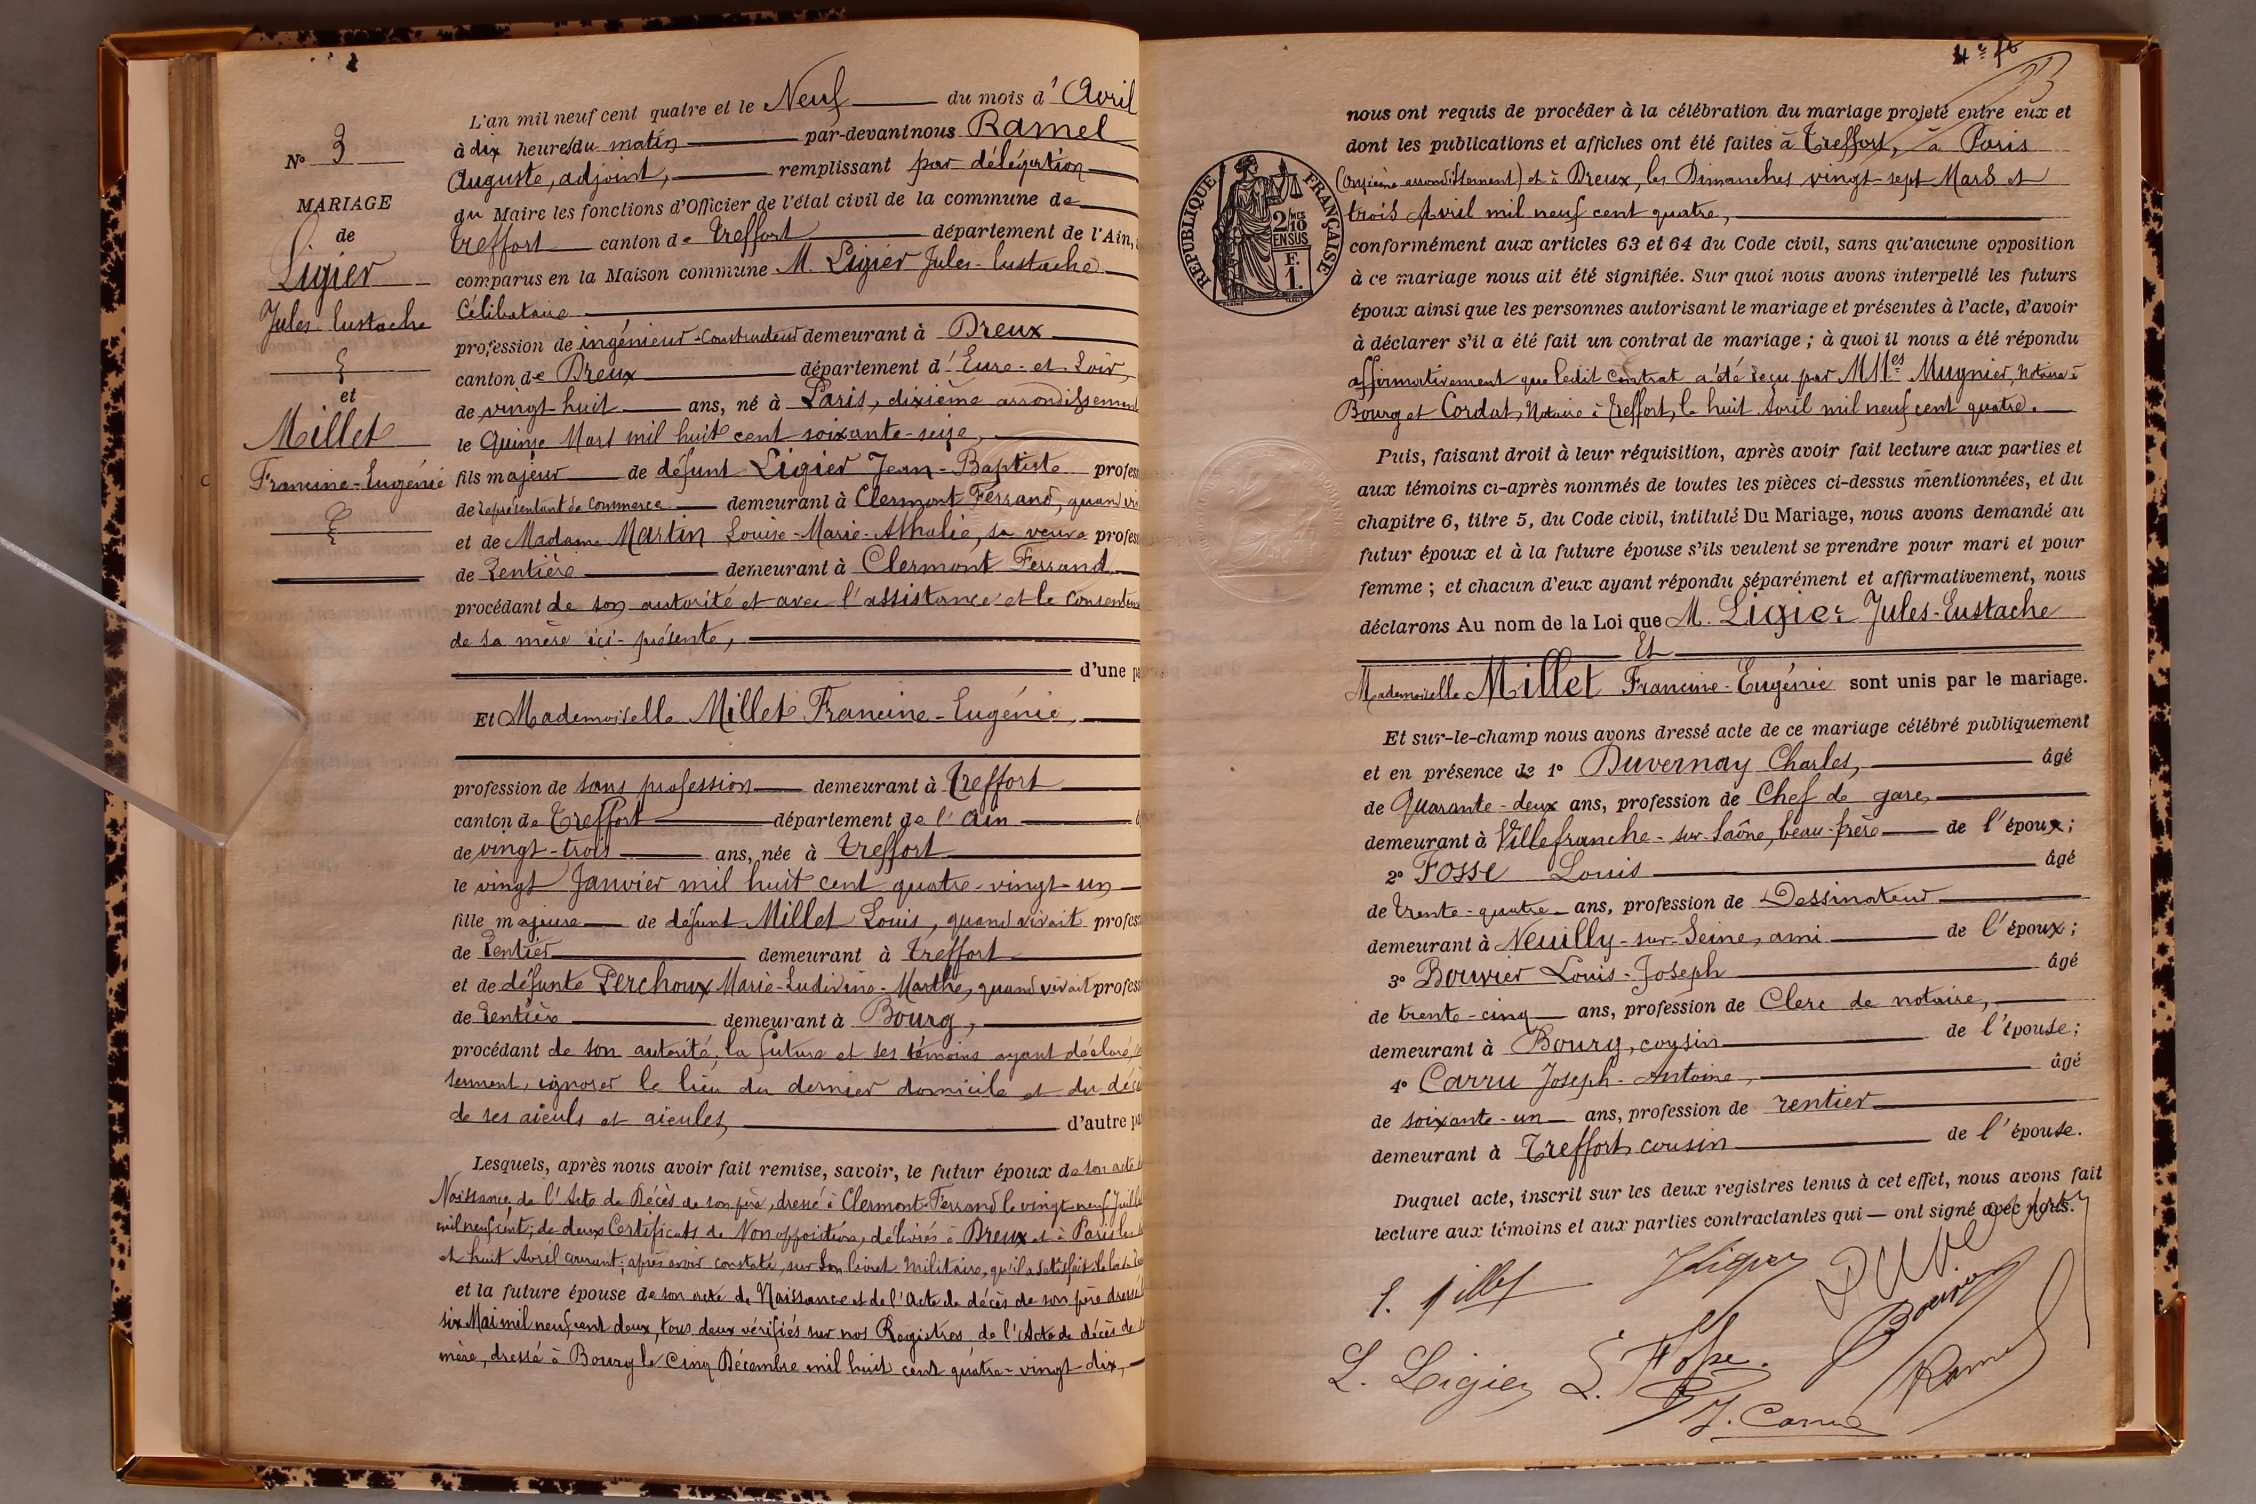 N° 3
MARIAGE
de
Ligier
Jules-Eustache
et
Millet
Francine-Eugénie
L'an mil neuf cent quatre et le Neuf du mois d'Avril
à dix heures du matin par-devant nous Ramel
Auguste, adjoint, remplissant par délégation
du Maire les fonctions d'Officier de l'état civil de la commune de
Treffort canton de Treffort département de l'Ain,
comparus en la Maison commune M. Ligier Jules-Eustache
Célibataire
profession de ingénieur-constructeur demeurant à Dreux
canton de Dreux département d'Eure-et-Loir,
de vingt-huit ans, né à Paris, dixième arrondissement
le Quinze Mars mil huit cent soixante-seize,
fils majeur de défunt Ligier Jean-Baptiste profes
de représentant de commerce demeurant à Clermont Ferrand, quand viv
et de Madame Martin Louise-Marie-Athalie, sa veuve profess
de Rentière demeurant à Clermont Ferrand
procédant de son autorité et avec l'assistance et le consentem
de sa mère ici-présente,
d'une pa
Et Mademoiselle Millet Francine-Eugénie,
profession de sans profession demeurant à Treffort
canton de Treffort département de l'Ain
de vingt-trois ans, née à Treffort
le vingt Janvier mil huit cent quatre-vingt-un
fille majeure de défunt Millet Louis, quand vivait profess
de Rentier demeurant à Treffort
et de défunte Perchoux Marie-Ludivine-Marthe, quand vivait profess
de Rentière demeurant à Bourg,
procédant de son autorité, la future et ses témoins ayant déclaré,
serment, ignorer le lieu du dernier domicile et du décè
de ses aïeuls et aïeules, d'autre pa
Lesquels, après nous avoir fait remise, savoir, le futur époux de son acte
Naissance, de l'Acte de Décès de son père, dressé à Clermont-Ferrand le vingt-neuf Juillet
mil neuf cent; de deux Certificats de Non opposition, délivrés à Dreux et à Paris les
et huit Avril courant; après avoir constaté, sur son livret militaire, qu'il a satisfait à la loi
et la future épouse de son acte de Naissance et de l'Acte de décès de son père dressé
six Mai mil neuf cent deux, tous deux vérifiés sur nos Registres de l'Acte de décès de
mère, dressé à Bourg le Cinq Décembre mil huit cent quatre-vingt-dix,
RÉPUBLIQUE FRANÇAISE
2/10 EN SUS
F. 1.
nous ont requis de procéder à la célébration du mariage projeté entre eux et
dont les publications et affiches ont été faites à Treffort, à Paris
(onzième arrondissement) et à Dreux, les Dimanches vingt-sept Mars et
trois Avril mil neuf cent quatre,
conformément aux articles 63 et 64 du Code civil, sans qu'aucune opposition
à ce mariage nous ait été signifiée. Sur quoi nous avons interpellé les futurs
époux ainsi que les personnes autorisant le mariage et présentes à l'acte, d'avoir
à déclarer s'il a été fait un contrat de mariage; à quoi il nous a été répondu
affirmativement que ledit contrat a été reçu par MMes Mugnier, Notaire à
Bourg et Cordat, Notaire à Treffort, le huit Avril mil neuf cent quatre.
Puis, faisant droit à leur réquisition, après avoir fait lecture aux parties et
aux témoins ci-après nommés de toutes les pièces ci-dessus mentionnées, et du
chapitre 6, titre 5, du Code civil, intitulé Du Mariage, nous avons demandé au
futur époux et à la future épouse s'ils veulent se prendre pour mari et pour
femme; et chacun d'eux ayant répondu séparément et affirmativement, nous
déclarons Au nom de la Loi que M. Ligier Jules-Eustache
Et
Mademoiselle Millet Francine-Eugénie sont unis par le mariage.
Et sur-le-champ nous avons dressé acte de ce mariage célébré publiquement
et en présence de 1° Duvernay Charles, âgé
de Quarante-deux ans, profession de Chef de gare,
demeurant à Villefranche-sur-Saône, beau-frère de l'époux;
2° Fosse Louis âgé
de trente-quatre ans, profession de Dessinateur
demeurant à Neuilly-sur-Seine, ami de l'époux;
3° Bouvier Louis-Joseph âgé
de trente-cinq ans, profession de Clerc de notaire,
demeurant à Bourg, cousin de l'épouse;
4° Carru Joseph-Antoine, âgé
de soixante-un ans, profession de rentier
demeurant à Treffort, cousin de l'épouse.
Duquel acte, inscrit sur les deux registres tenus à cet effet, nous avons fait
lecture aux témoins et aux parties contractantes qui ont signé avec nous.
Millet JLigier Duvernay
Bouvier
L. Ligier L. Fosse. Ramel
J. Carru